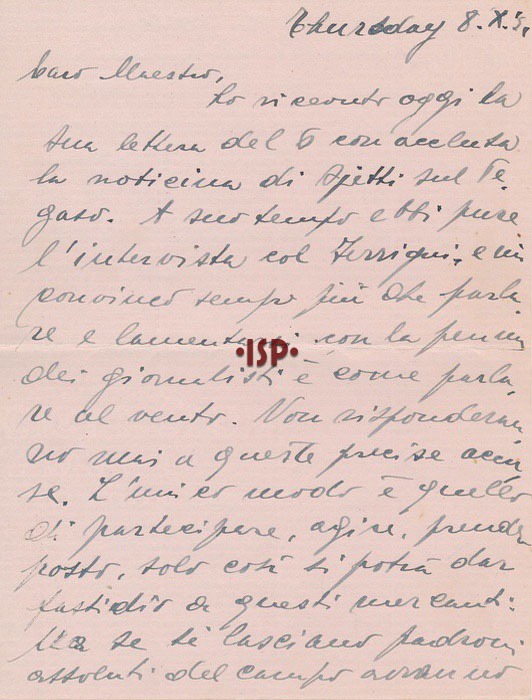 Thursday 8. X. 3
Caro Maestro,
Ho ricevuto oggi la
sua lettera del 6 con acclusa
la noticina di Ojetti sul Pe-
gaso. A suo tempo ebbi pure
l'intervista col e mi
convinco sempre più che parla-
re e lamentarsi con la penna
dei giornalisti è come parla-
re al vento. Non risponderan-
no mai a queste precise accu-
se. L'unico modo è quello
di partecipare, agire, prender
posto, solo così si potrà dar
fastidio a questi mercanti.
Ma se si lasciano padroni
assoluti del campo avranno
•ISP•